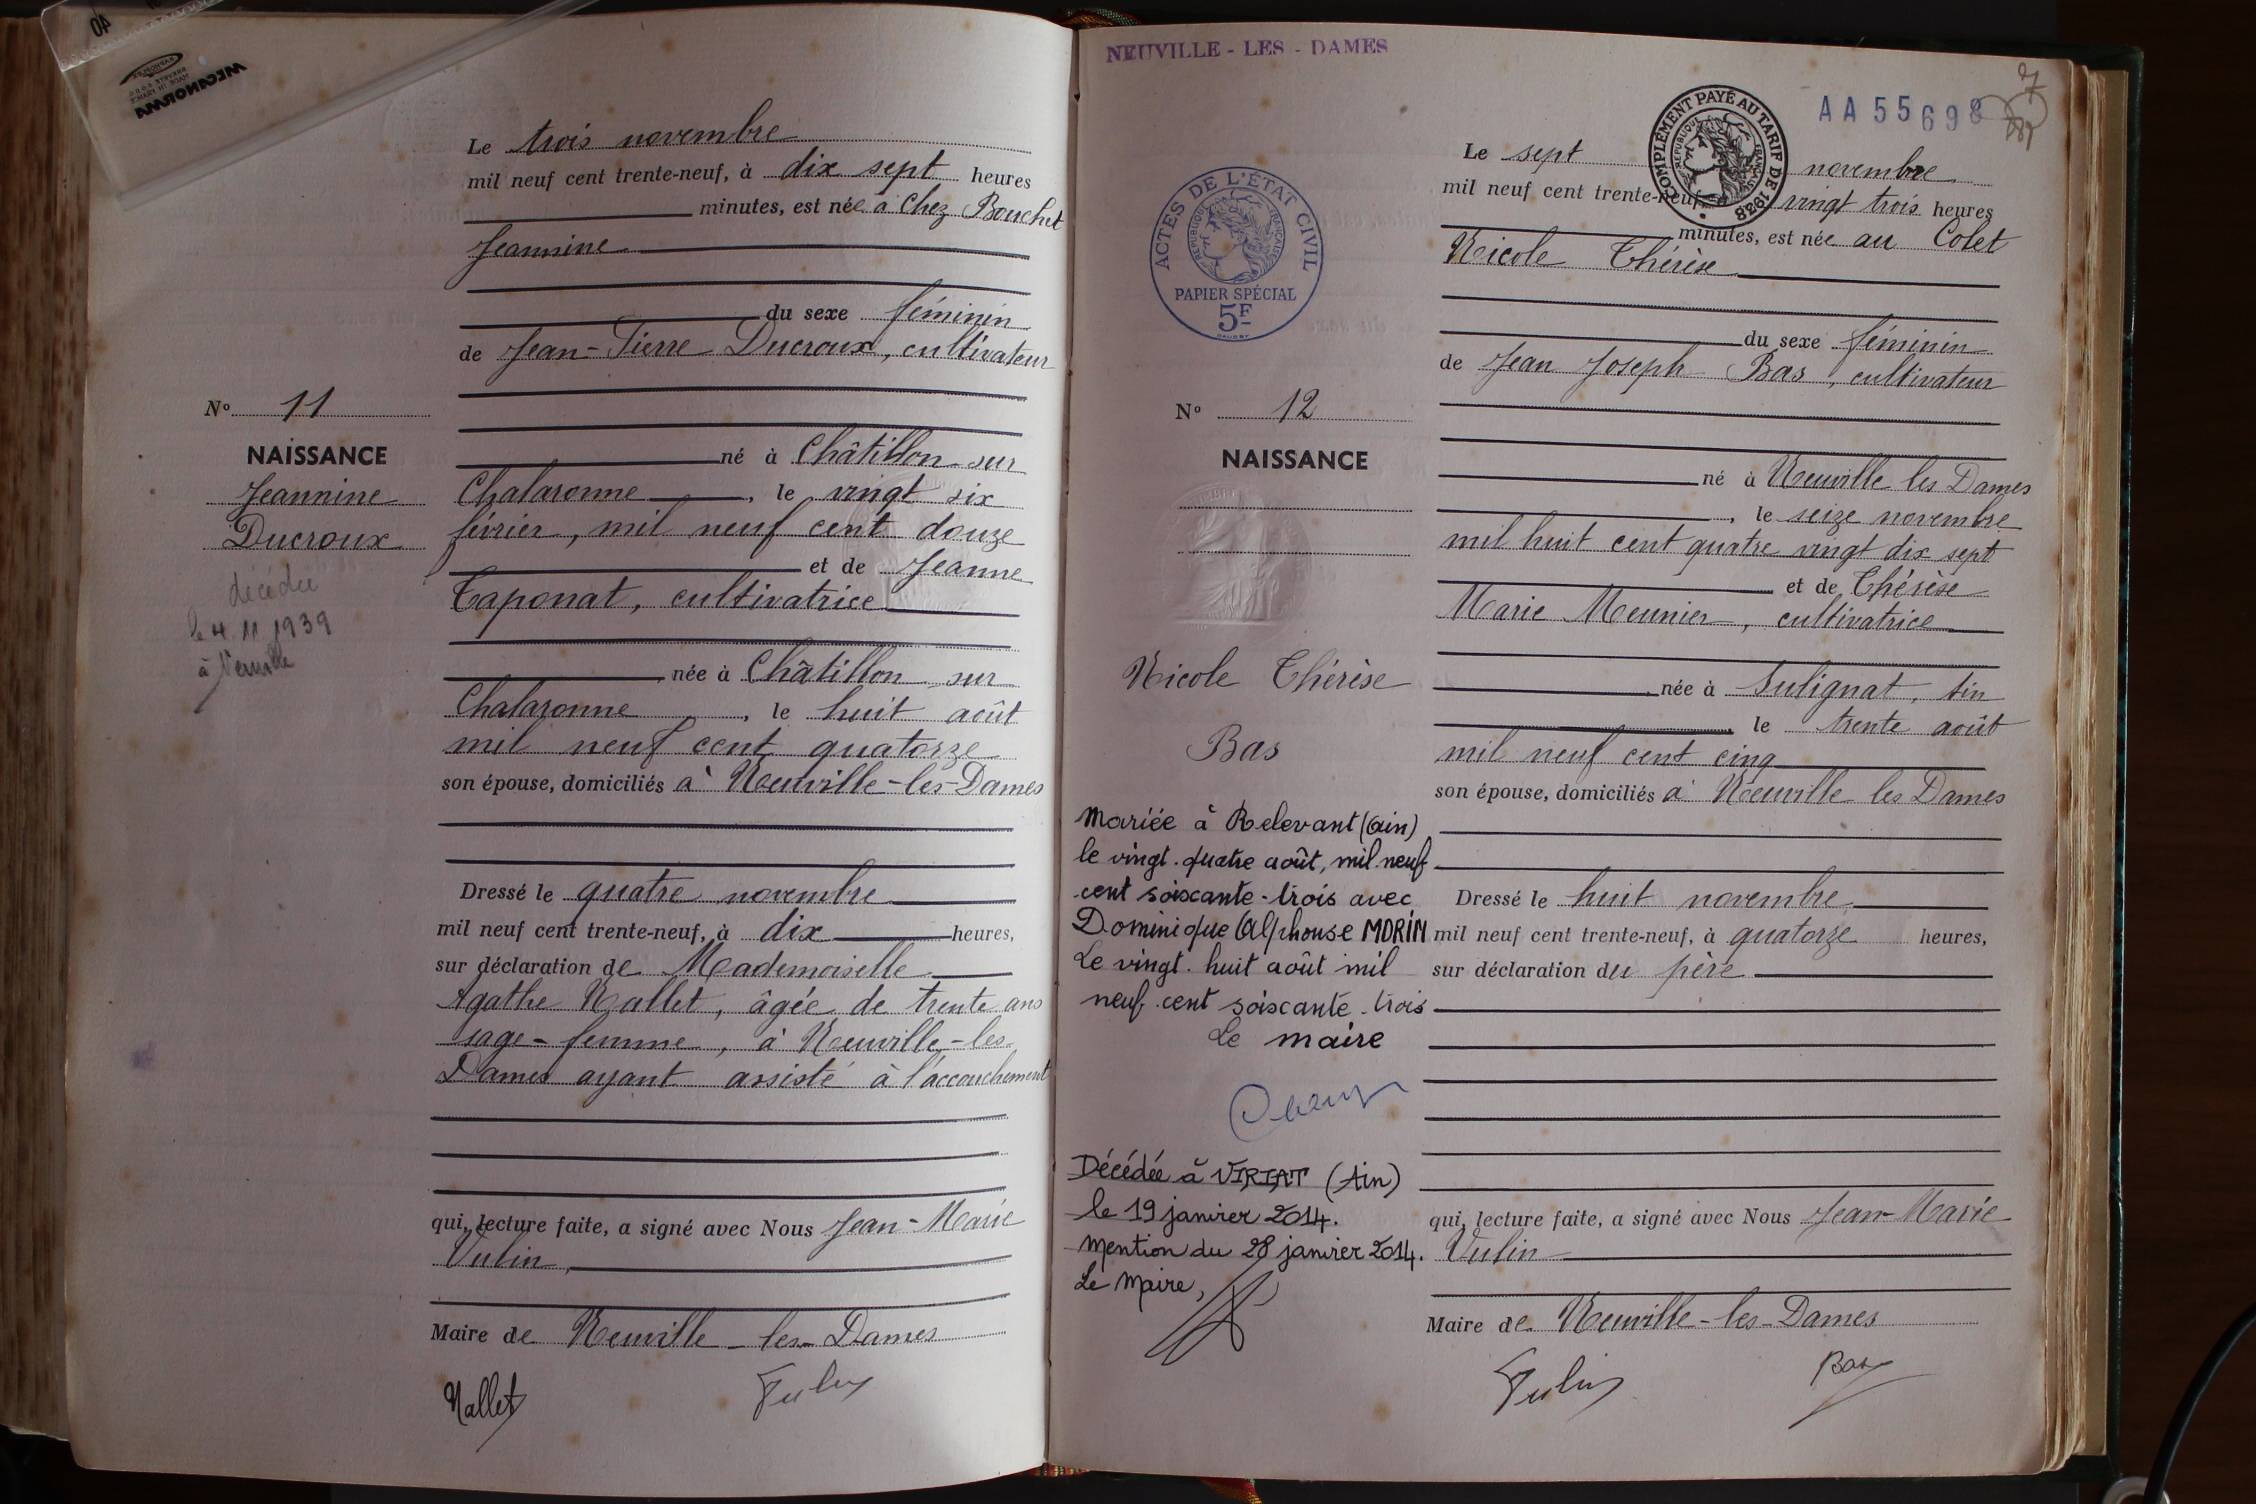 Le trois novembre
mil neuf cent trente-neuf, à dix sept heures
minutes, est née à Chez Bouchet
Jeannine
du sexe féminin
de Jean-Pierre Ducroux, cultivateur
né à Châtillon-sur
Chalaronne, le vingt six
février, mil neuf cent douze
et de Jeanne
Taponat, cultivatrice
née à Châtillon-sur
Chalaronne, le huit août
mil neuf cent quatorze
son épouse, domiciliés à Neuville-les-Dames
Dressé le quatre novembre
mil neuf cent trente-neuf, à dix heures,
sur déclaration de Mademoiselle
Agathe Nallet, âgée de trente ans
sage-femme, à Neuville-les-
Dames ayant assisté à l'accouchement
qui, lecture faite, a signé avec Nous Jean-Marie
Vulin,
Maire de Neuville-les-Dames
Nallet
Vulin
No 11
NAISSANCE
Jeannine
Ducroux
décédée
le 4.11.1939
à Neuville
MECANORMA
40
NEUVILLE-LES-DAMES
AA55698
7
COMPLÉMENT PAYÉ AU TARIF DE 1938
RÉPUBLIQUE FRANÇAISE
ACTES DE L'ÉTAT CIVIL
RÉPUBLIQUE FRANÇAISE
PAPIER SPÉCIAL
5F
No 12
NAISSANCE
Nicole Thérèse
Bas
Mariée à Relevant (Ain)
le vingt-quatre août, mil neuf
cent soiscante-trois avec
Dominique Alphonse MORIN
Le vingt-huit août mil
neuf cent soiscante-trois
Le maire
Décédée à VIRIAT (Ain)
le 19 janvier 2014.
Mention du 28 janvier 2014.
Le Maire,
Le sept novembre
mil neuf cent trente-neuf, à vingt trois heures
minutes, est née au Colet
Nicole Thérèse
du sexe féminin
de Jean Joseph Bas, cultivateur
né à Neuville les Dames
, le seize novembre
mil huit cent quatre vingt dix sept
et de Thérèse
Marie Meunier, cultivatrice
née à Sulignat, Ain
le trente août
mil neuf cent cinq
son épouse, domiciliés à Neuville les Dames
Dressé le huit novembre
mil neuf cent trente-neuf, à quatorze heures,
sur déclaration du père
qui, lecture faite, a signé avec Nous Jean-Marie
Vulin
Maire de Neuville-les-Dames
Vulin
Bas